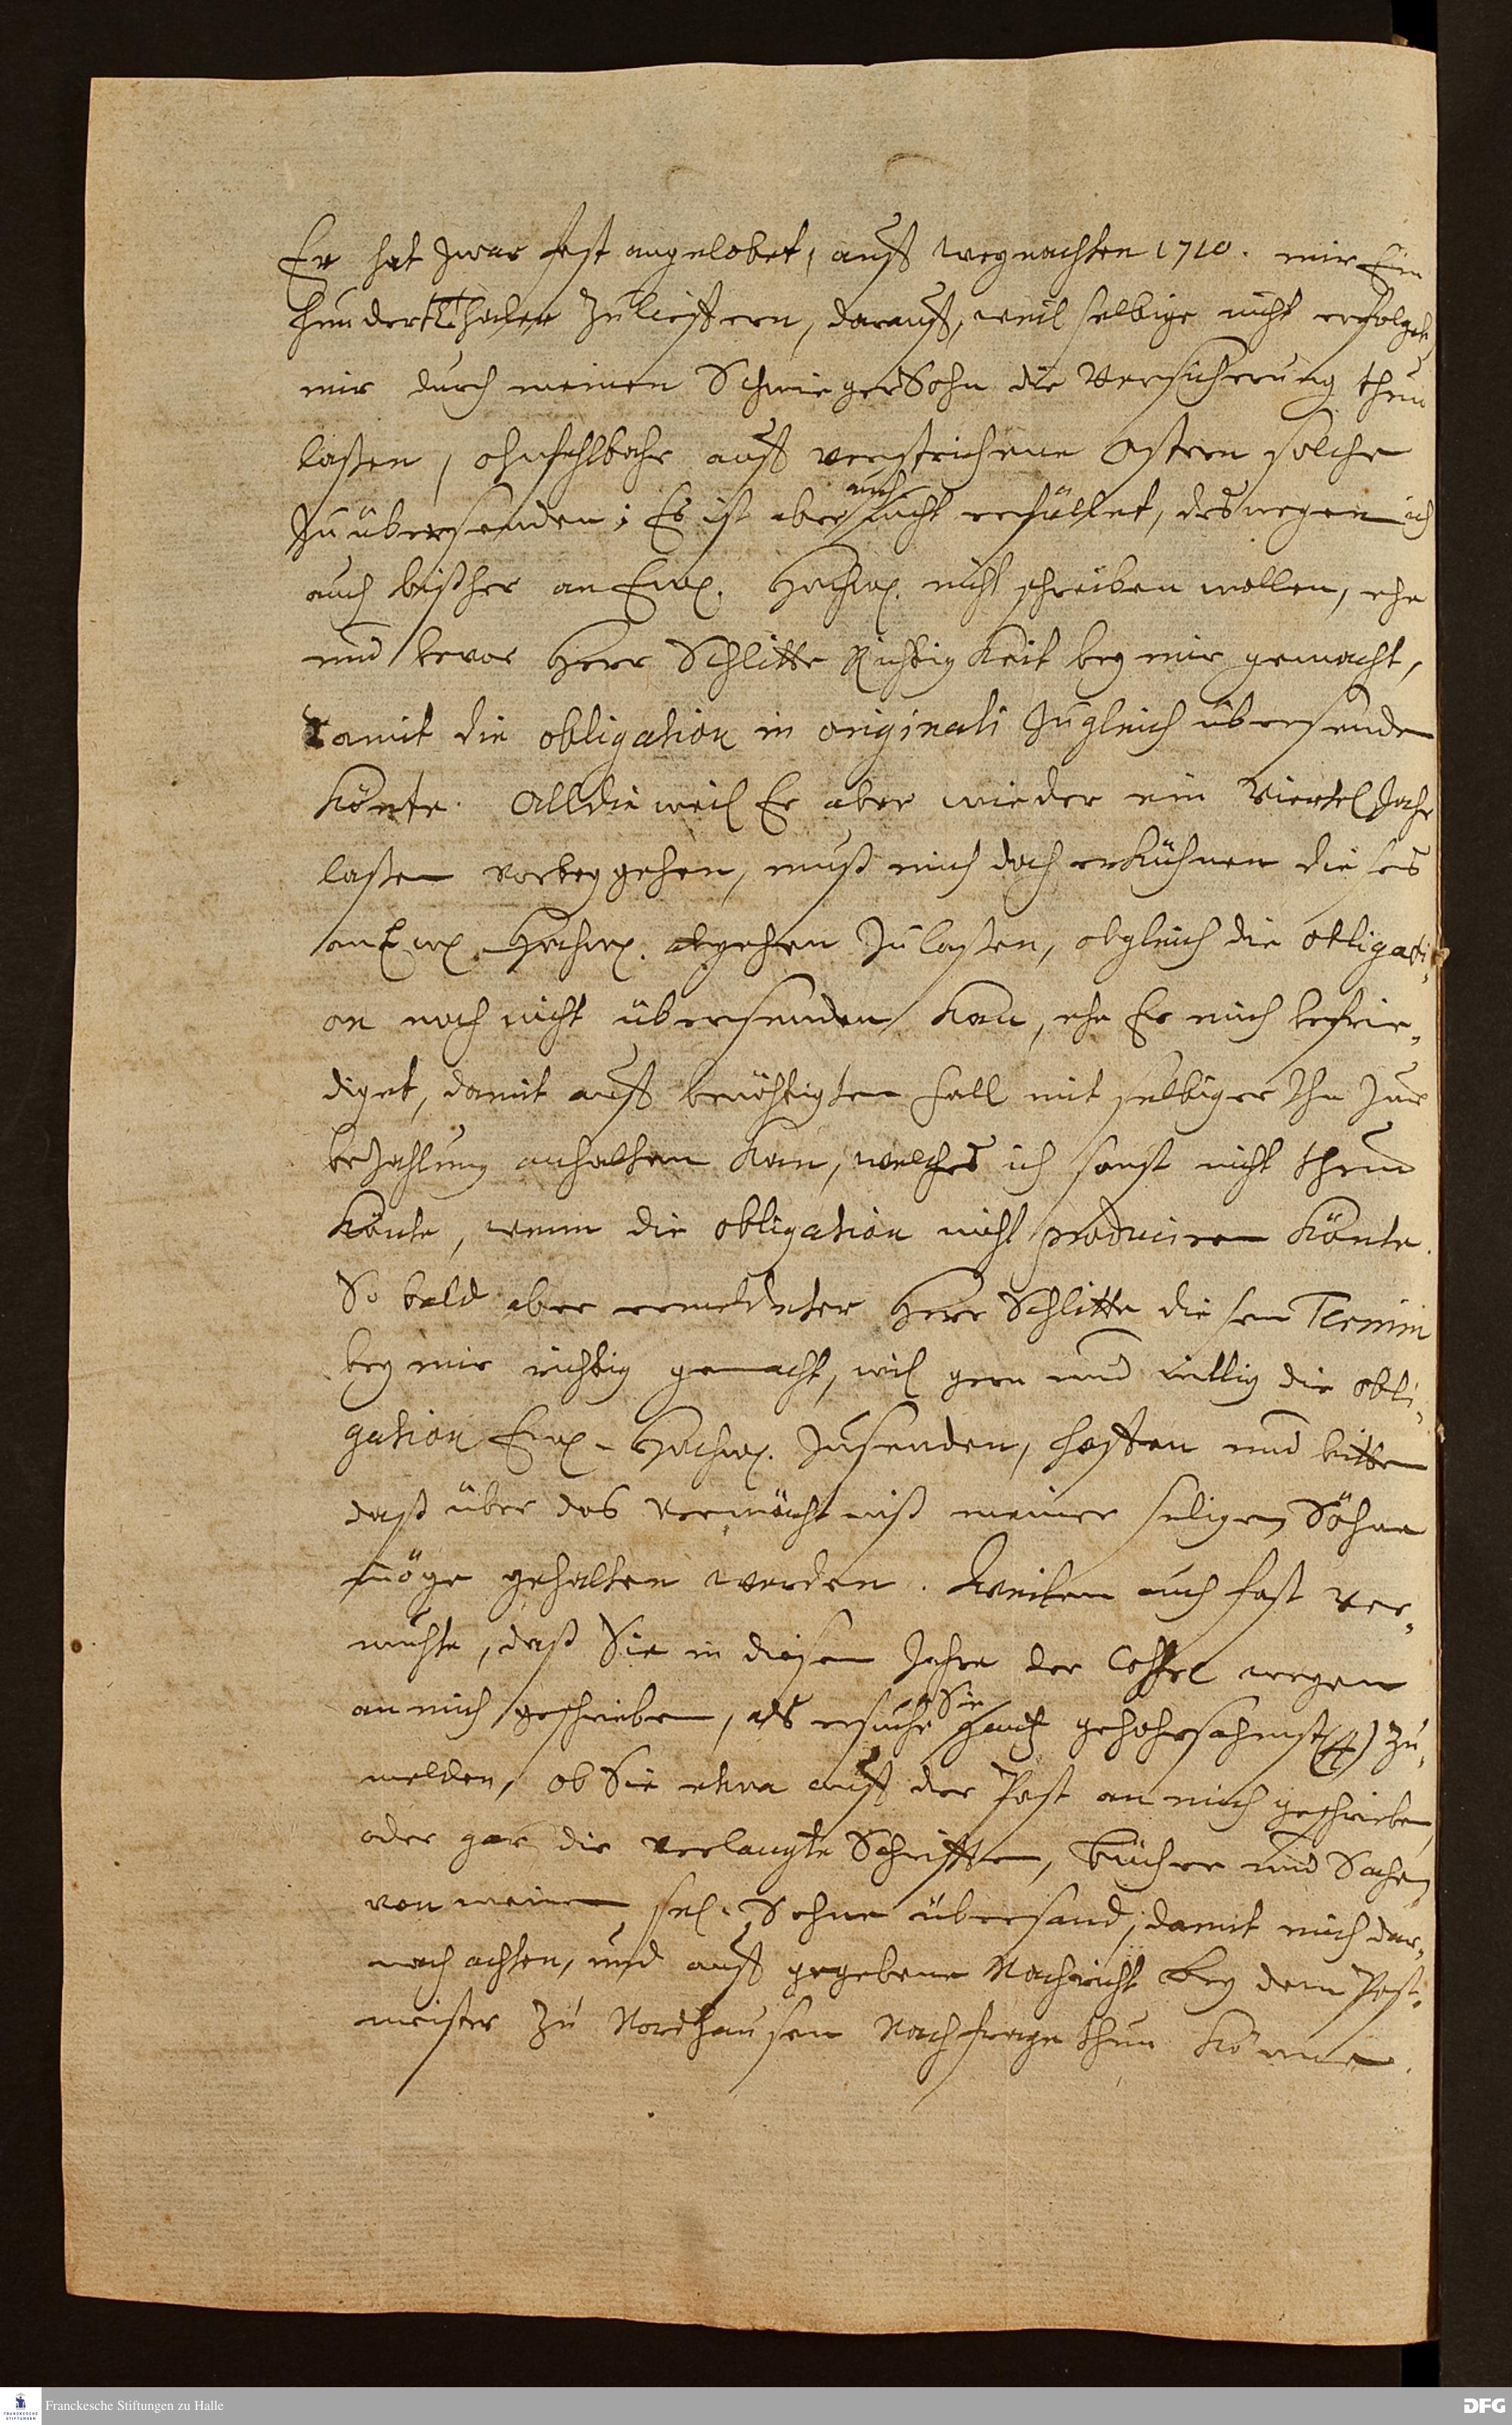 Er hat zwar fest angelobet, auff weynachten 1710. mir Ein
hundert Thaler zu lieffern, darauff, weil selbige nicht erfolget,
mir durch meinen SchwiegerSohn die Versicherung thun
laßen, ohnfehlbahr auff verstrichene Ostern solche
zu übersenden; Es ist aber auch nicht erfüllet, deswegen ich
auch bißher an Ew. Hochw. nicht schreiben wollen, ehe
und bevor Herr Schlitte Richtigkeit bey mir gemacht,
damit die obligation in originali zugleich übersenden
könte. Alldieweil Er aber wieder ein Viertel Jahr
laßen vorbey gehen, muß mich doch erkühnen dieses
an Ew. Hochw. abgehen zu laßen, obgleich die obligati-
on noch nicht übersenden kan, ehe Er mich befrie-
diget, damit auff benöhtigten Fall mit selbiger Ihn zur
bezahlung anhalten kan, welches ich sonst nicht thun
könte, wenn die obligation nicht produciren könte.
So bald aber ermeldeter Herr Schlitte diesen Termin
bey mir richtig gemacht, wil gern und willig die obli-
gation Ew. Hochw. zusenden, hoffen und bitten
daß über das Vermächtniß meiner seligen Söhne
möge gehalten werden. Weilen auch fast ver-
muhte, daß Sie in diesem Jahre der Coffre wegen
an mich geschrieben, als ersuche Sie gantz gehohrsahmst zu
melden, ob Sie etwa auff der Post an mich geschrieben,
oder gar die verlangte Schrifften, Bücher und Sachen
von meinem sel. Sohne übersand, damit mich dar-
nach achten, und auff gegebene Nachricht bey dem Post-
meister zu Nordhausen Nachfrage thun könne.
Franckesche Stiftungen zu Halle
DFG